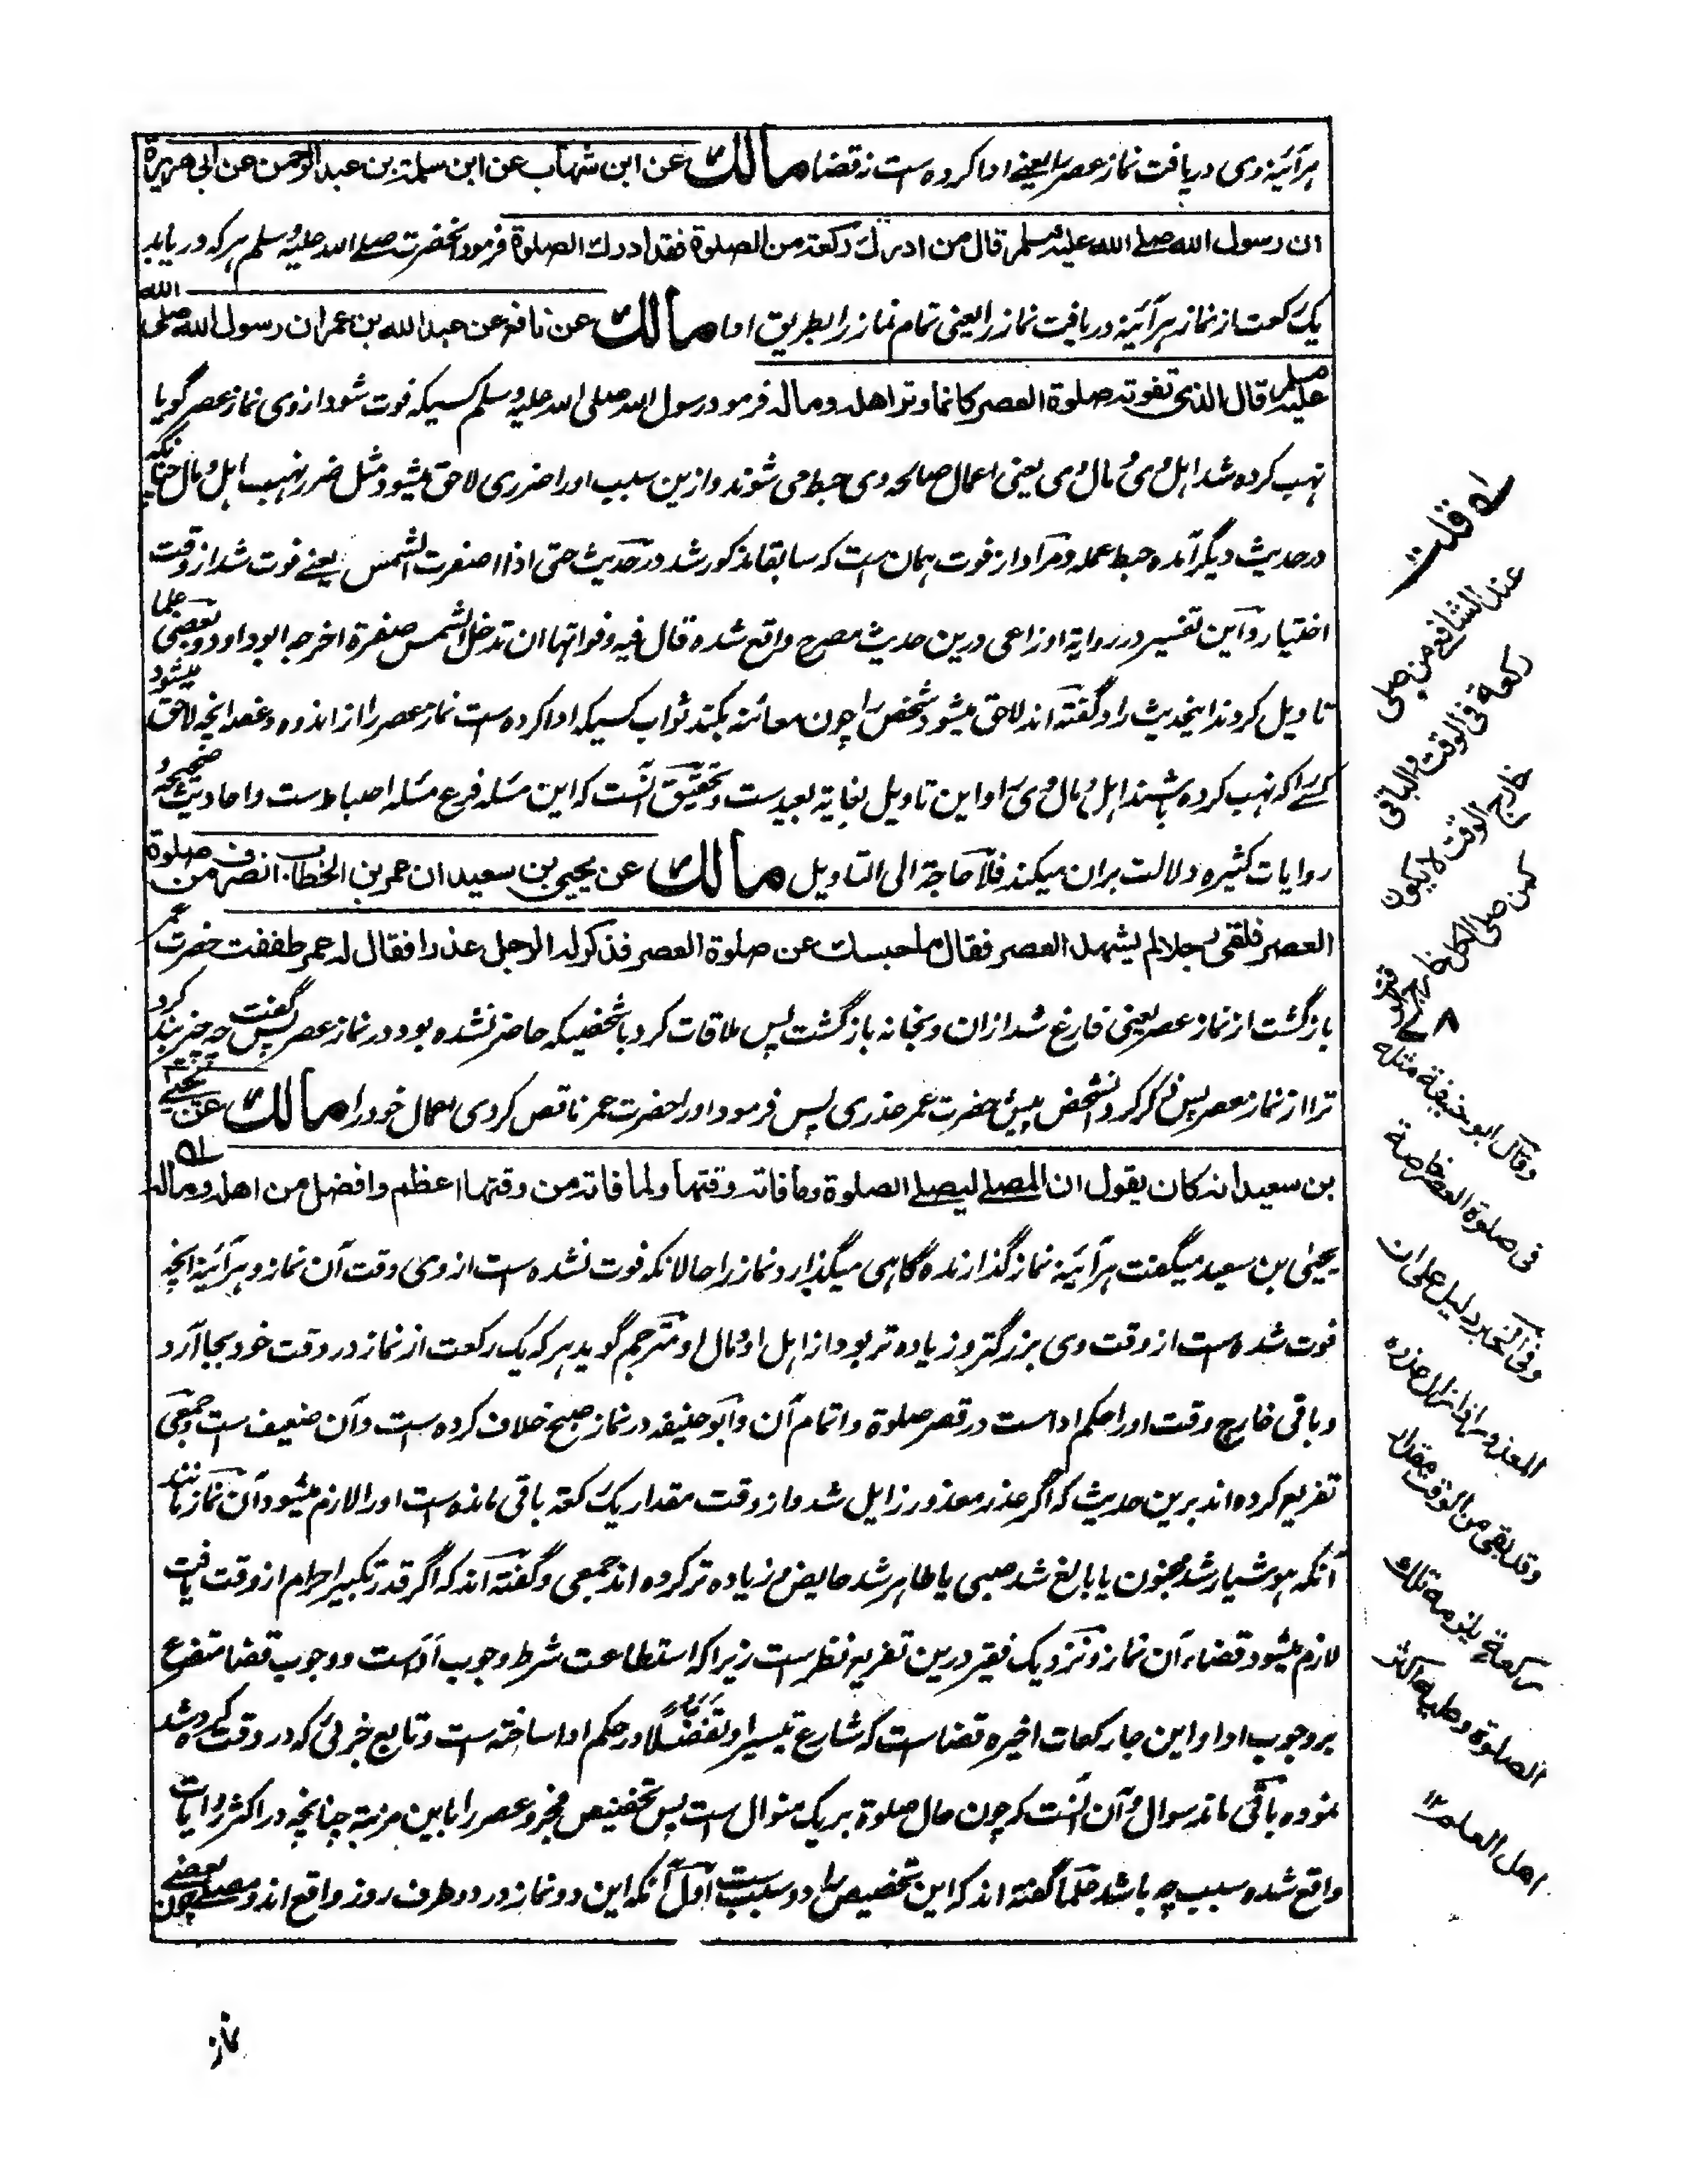 هرآئینه وی دریافت نماز عصر را یعنے ادا کرده است نه قضا مالك عن ابن شهاب عن ابن سلمة بن عبد الرحمن عن ابی هریرة
ان رسول الله صلے الله علیه وسلم قال من ادرك ركعة من الصلوة فقد ادرك الصلوة فرمود آنحضرت صلے الله علیه وسلم هرکه دریابد
یک رکعت از نماز هرآئینه دریافت نماز را یعنی تمام نماز را بطریق ادا مالك عن نافع عن عبد الله بن عمر ان رسول الله صلی الله
علیه وسلم قال الذی تفوته صلوة العصر كانما وتر اهله وماله فرمود رسول الله صلی الله علیه وسلم کسیکه فوت شود از وی نماز عصر گویا
نهب کرده شد اهل وی و مال وی یعنی اعمال صالحه وی حبط می شوند و ازین سبب او را ضرری لاحق میشود مثل ضرر نهب اهل و مال چنانکه
در حدیث دیگر آمده حبط عمله و مراد از فوت همان است که سابقا مذکور شد در حدیث حتی اذا اصفرت الشمس یعنے فوت شد از وقت
اختیار و این تفسیر در روایة اوزاعی درین حدیث مصرح واقع شده قال فیه وفواتها ان تدخل الشمس صفرة اخرجه ابو داود و بعضی علما
تاویل کردند اینحدیث را و گفته اند لاحق میشود شخص را چون معائنه بکند ثواب کسیکه ادا کرده است نماز عصر را از اندوه و غصه انچه لاحق میشود
کسے را که نهب کرده باشند اهل و مال وی را و این تاویل بغایة بعید ست و تحقیق آنست که این مسئله فرع مسئله احباط ست و احادیث صحیحه و
روایات کثیره دلالت بران میکند فلا حاجة الی التاویل مالك عن یحیی بن سعید ان عمر بن الخطاب انصرف من صلوة
العصر فلقی رجلا لم یشهد العصر فقال ما حبسك عن صلوة العصر فذكر له الرجل عذرا فقال له عمر طففت حضرت عمر
بازگشت از نماز عصر یعنی فارغ شد ازان و بخانه بازگشت پس ملاقات کرد با شخصیکه حاضر نشده بود در نماز عصر پس گفت چه چیز بند کرد
ترا از نماز عصر پس ذکر کرد آنشخص پیش حضرت عمر عذری پس فرمود او را حضرت عمر ناقص کردی اعمال خود را مالك عن یحیے
بن سعید انه كان یقول ان المصلے لیصلے الصلوة وما فاته وقتها ولما فاته من وقتها اعظم وافضل من اهله وماله
یحییٰ بن سعید میگفت هرآئینه نماز گذارنده گاهی میگذارد نماز را حالانکه فوت نشده است از وی وقت آن نماز و هرآئینه انچه
فوت شده است از وقت وی بزرگتر و زیاده تر بود از اهل او و مال او مترجم گوید هر که یک رکعت از نماز در وقت خود بجا آرد
و باقی خارج وقت او را حکم اداست در قصر صلوة و اتمام آن و ابو حنیفه در نماز صبح خلاف کرده است و آن ضعیف است و جمعی
تفریع کرده اند برین حدیث که اگر عذر معذور زایل شد و از وقت مقدار یک رکعة باقی مانده است او را لازم میشود آن نماز مانند
آنکه هوشیار شد مجنون یا بالغ شد صبی یا طاهر شد حایض و زیاده تر کرده اند جمعی و گفته اند که اگر قدر تکبیر احرام از وقت یافت
لازم میشود قضاء آن نماز و نزدیک فقیر درین تفریع نظر ست زیرا که استطاعت شرط وجوب اداست و وجوب قضا متفرع
بر وجوب ادا و این جا رکعات اخیره قضا است که شارع تیسیرا و تفضلا در حکم ادا ساخته است و تابع جزئی که در وقت کرده شد
نموده باقی ماند سوال و آن آنست که چون حال صلوة بر یک منوال است پس تخصیص فجر و عصر را باین مرتبة چنانچه در اکثر روایات
واقع شده سبب چه باشد علما گفته اند که این تخصیص را دو سبب است اول آنکه این دو نماز در دو طرف روز واقع اند و مصلے بعضے چون
نماز
له قلت
عند الشافعی من صلی
ركعة فی الوقت والباقی
خارج الوقت لا یكون
كمن صلی الكل خارج الوقت
وقال ابو حنیفة مثله
فی صلوة العصر خاصة
وفی الخبر دلیل علی ان
المعذور اذا زال عذره
وقد بقی من الوقت مقدار
ركعة یلزمه تلك
الصلوة وعلیه اكثر
اهل العلم ۱۲